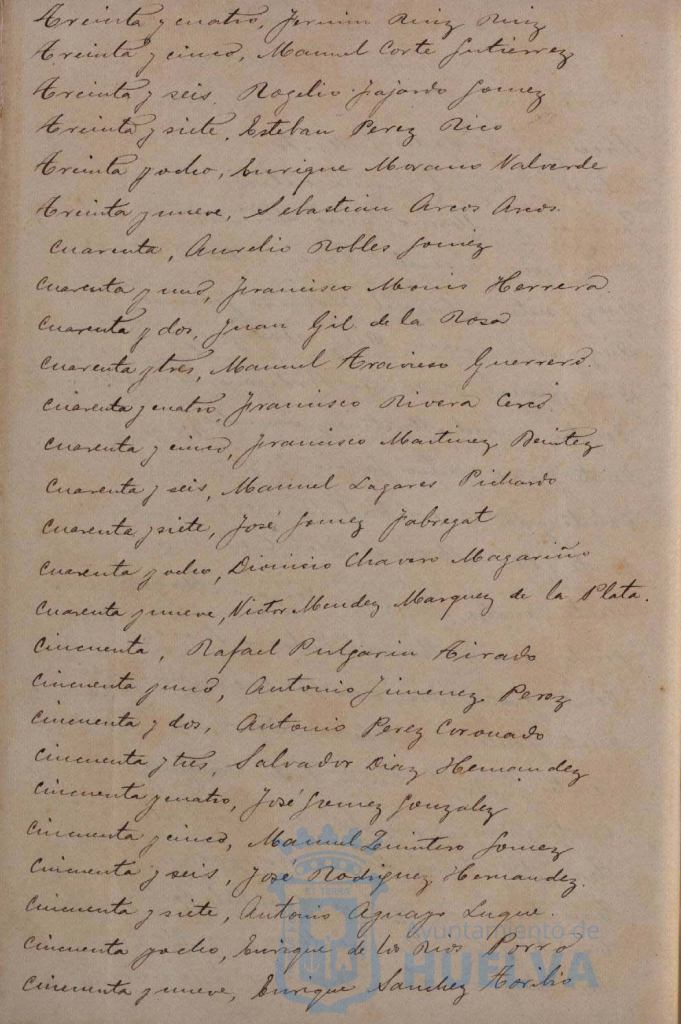 treinta y cuatro, Fermin Ruiz Ruiz
treinta y cinco, Manuel Corte Gutierrez
treinta y seis, Rogelio Fajardo Gomez
treinta y siete, Esteban Perez Rico
treinta y ocho, Enrique Morano Valverde
treinta y nueve, Sebastian Arcos Arcos.
Cuarenta, Aurelio Robles Gomez
Cuarenta y uno, Francisco Monis Herrera.
Cuarenta y dos, Juan Gil de la Rosa
Cuarenta y tres, Manuel Travieso Guerrero.
Cuarenta y cuatro, Francisco Rivera
Cuarenta y cinco, Francisco Martinez Benitez
Cuarenta y seis, Manuel Lagares Pichardo
Cuarenta y siete, José Gomez Fabregat
Cuarenta y ocho, Dionicio Chavero Magariño
Cuarenta y nueve, Victor Mendez Marquez de la Plata.
Cincuenta, Rafael Pulgarin Tirado
Cincuenta y uno, Antonio Jimenez Perez
Cincuenta y dos, Antonio Perez Coronado
Cincuenta y tres, Salvador Diaz Hernandez
Cincuenta y cuatro, José Gomez Gonzalez
Cincuenta y cinco, Manuel Quintero Gomez
Cincuenta y seis, José Rodriguez Hernandez.
Cincuenta y siete, Antonio Aguayo Luque.
Cincuenta y ocho, Enrique de los Rios Porro
Cincuenta y nueve, Enrique Sanchez Toribio
Ayuntamiento de
HUELVA